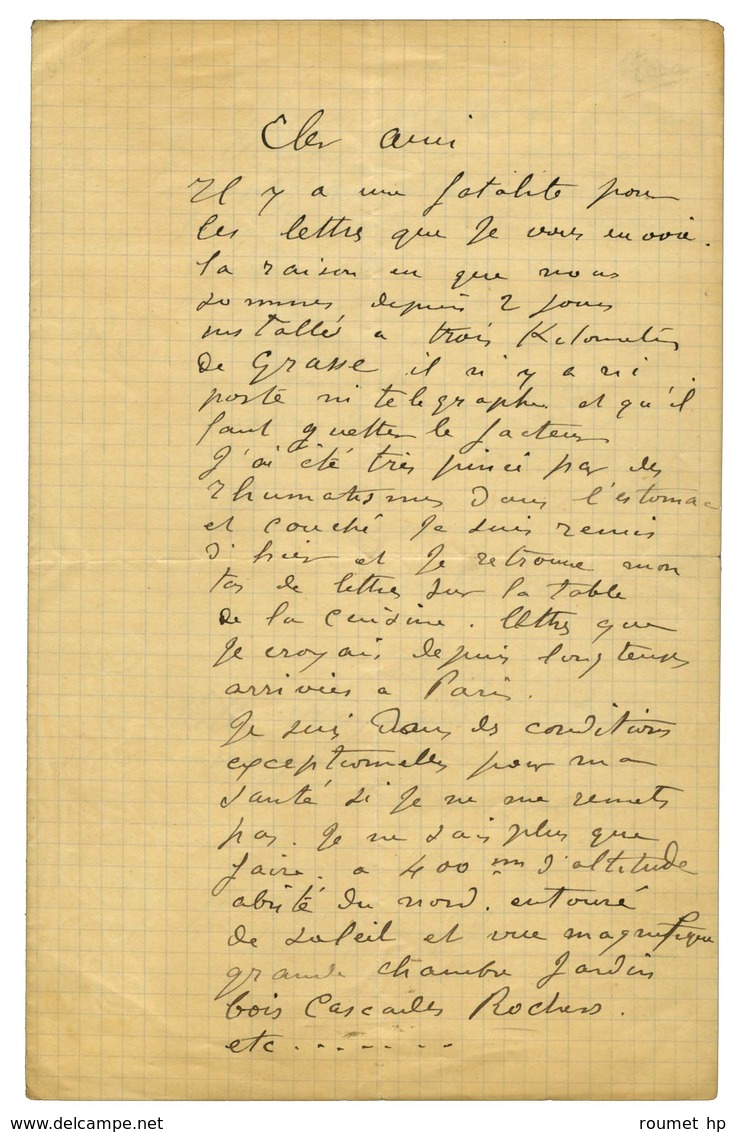 Cher ami
Il y a une fatalité pour
les lettres que je vous envoie.
la raison en que nous
sommes depuis 2 jours
installés a trois Kilomètres
de Grasse il n'y a ni
poste ni télégraphe et qu'il
faut guetter le facteur
J'ai été très pincé par des
rhumatismes dans l'estomac
et couché je suis remis
d'hier et je retrouve mon
tas de lettres sur la table
de la cuisine. lettres que
je croyais depuis longtemps
arrivées a Paris.
Je suis dans des conditions
exceptionnelles pour ma
santé si je ne me remets
pas. Je ne sais plus que
faire. a 400 m d'altitude
abrité du nord. entouré
de soleil et vue magnifique
grande chambre Jardin
bois Cascades Rochers.
etc.......
www.delcampe.net
roumet hp